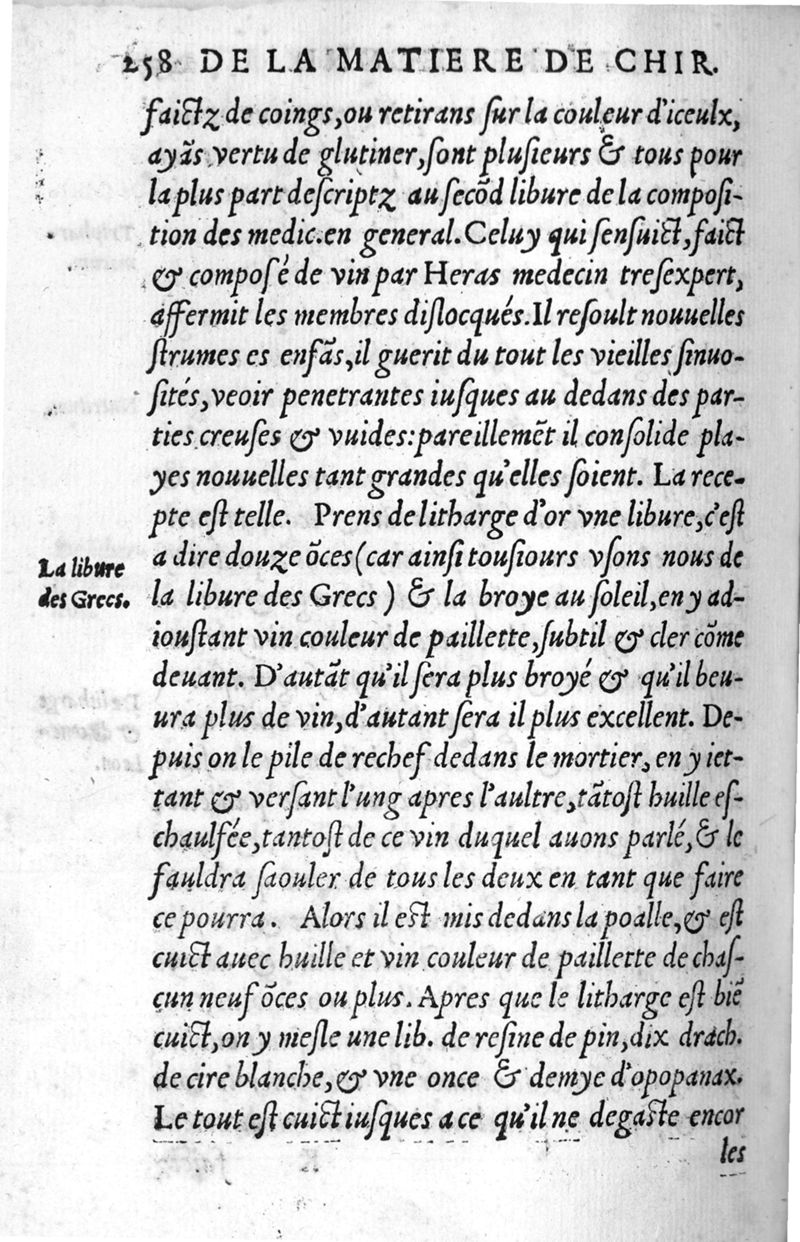 258 DE LA MATIERE DE CHIR.
faictz de coings, ou retirans ſur la couleur d'iceulx,
ayãs vertu de glutiner, ſont pluſieurs & tous pour
la plus part deſcriptz au ſecõd libure de la compoſi-
tion des medic. en general. Celuy qui ſenſuict, faict
& compoſé de vin par Heras medecin treſexpert,
affermit les membres diſlocqués. Il reſoult nouuelles
ſtrumes es enfãs, il guerit du tout les vieilles ſinuo-
ſités, veoir penetrantes iuſques au dedans des par-
ties creuſes & vuides: pareillemẽt il conſolide pla-
yes nouuelles tant grandes qu'elles ſoient. La rece-
pte eſt telle. Prens de litharge d'or vne libure, c'eſt
a dire douze õces (car ainſi touſiours vſons nous de
La libure
des Grecs.
la libure des Grecs) & la broye au ſoleil, en y ad-
iouſtant vin couleur de paillette, ſubtil & cler cõme
deuant. D'autãt qu'il ſera plus broyé & qu'il beu-
ura plus de vin, d'autant ſera il plus excellent. De-
puis on le pile de rechef dedans le mortier, en y iet-
tant & verſant l'ung apres l'aultre, tãtoſt huille eſ-
chaulfée, tantoſt de ce vin duquel auons parlé, & le
fauldra ſaouler de tous les deux en tant que faire
ce pourra. Alors il eſt mis dedans la poalle, & eſt
cuict auec huille et vin couleur de paillette de chaſ-
cun neuf õces ou plus. Apres que le litharge eſt biẽ
cuict, on y meſle une lib. de reſine de pin, dix drach.
de cire blanche, & vne once & demye d'opopanax.
Le tout eſt cuict iuſques a ce qu'il ne degaſte encor
les